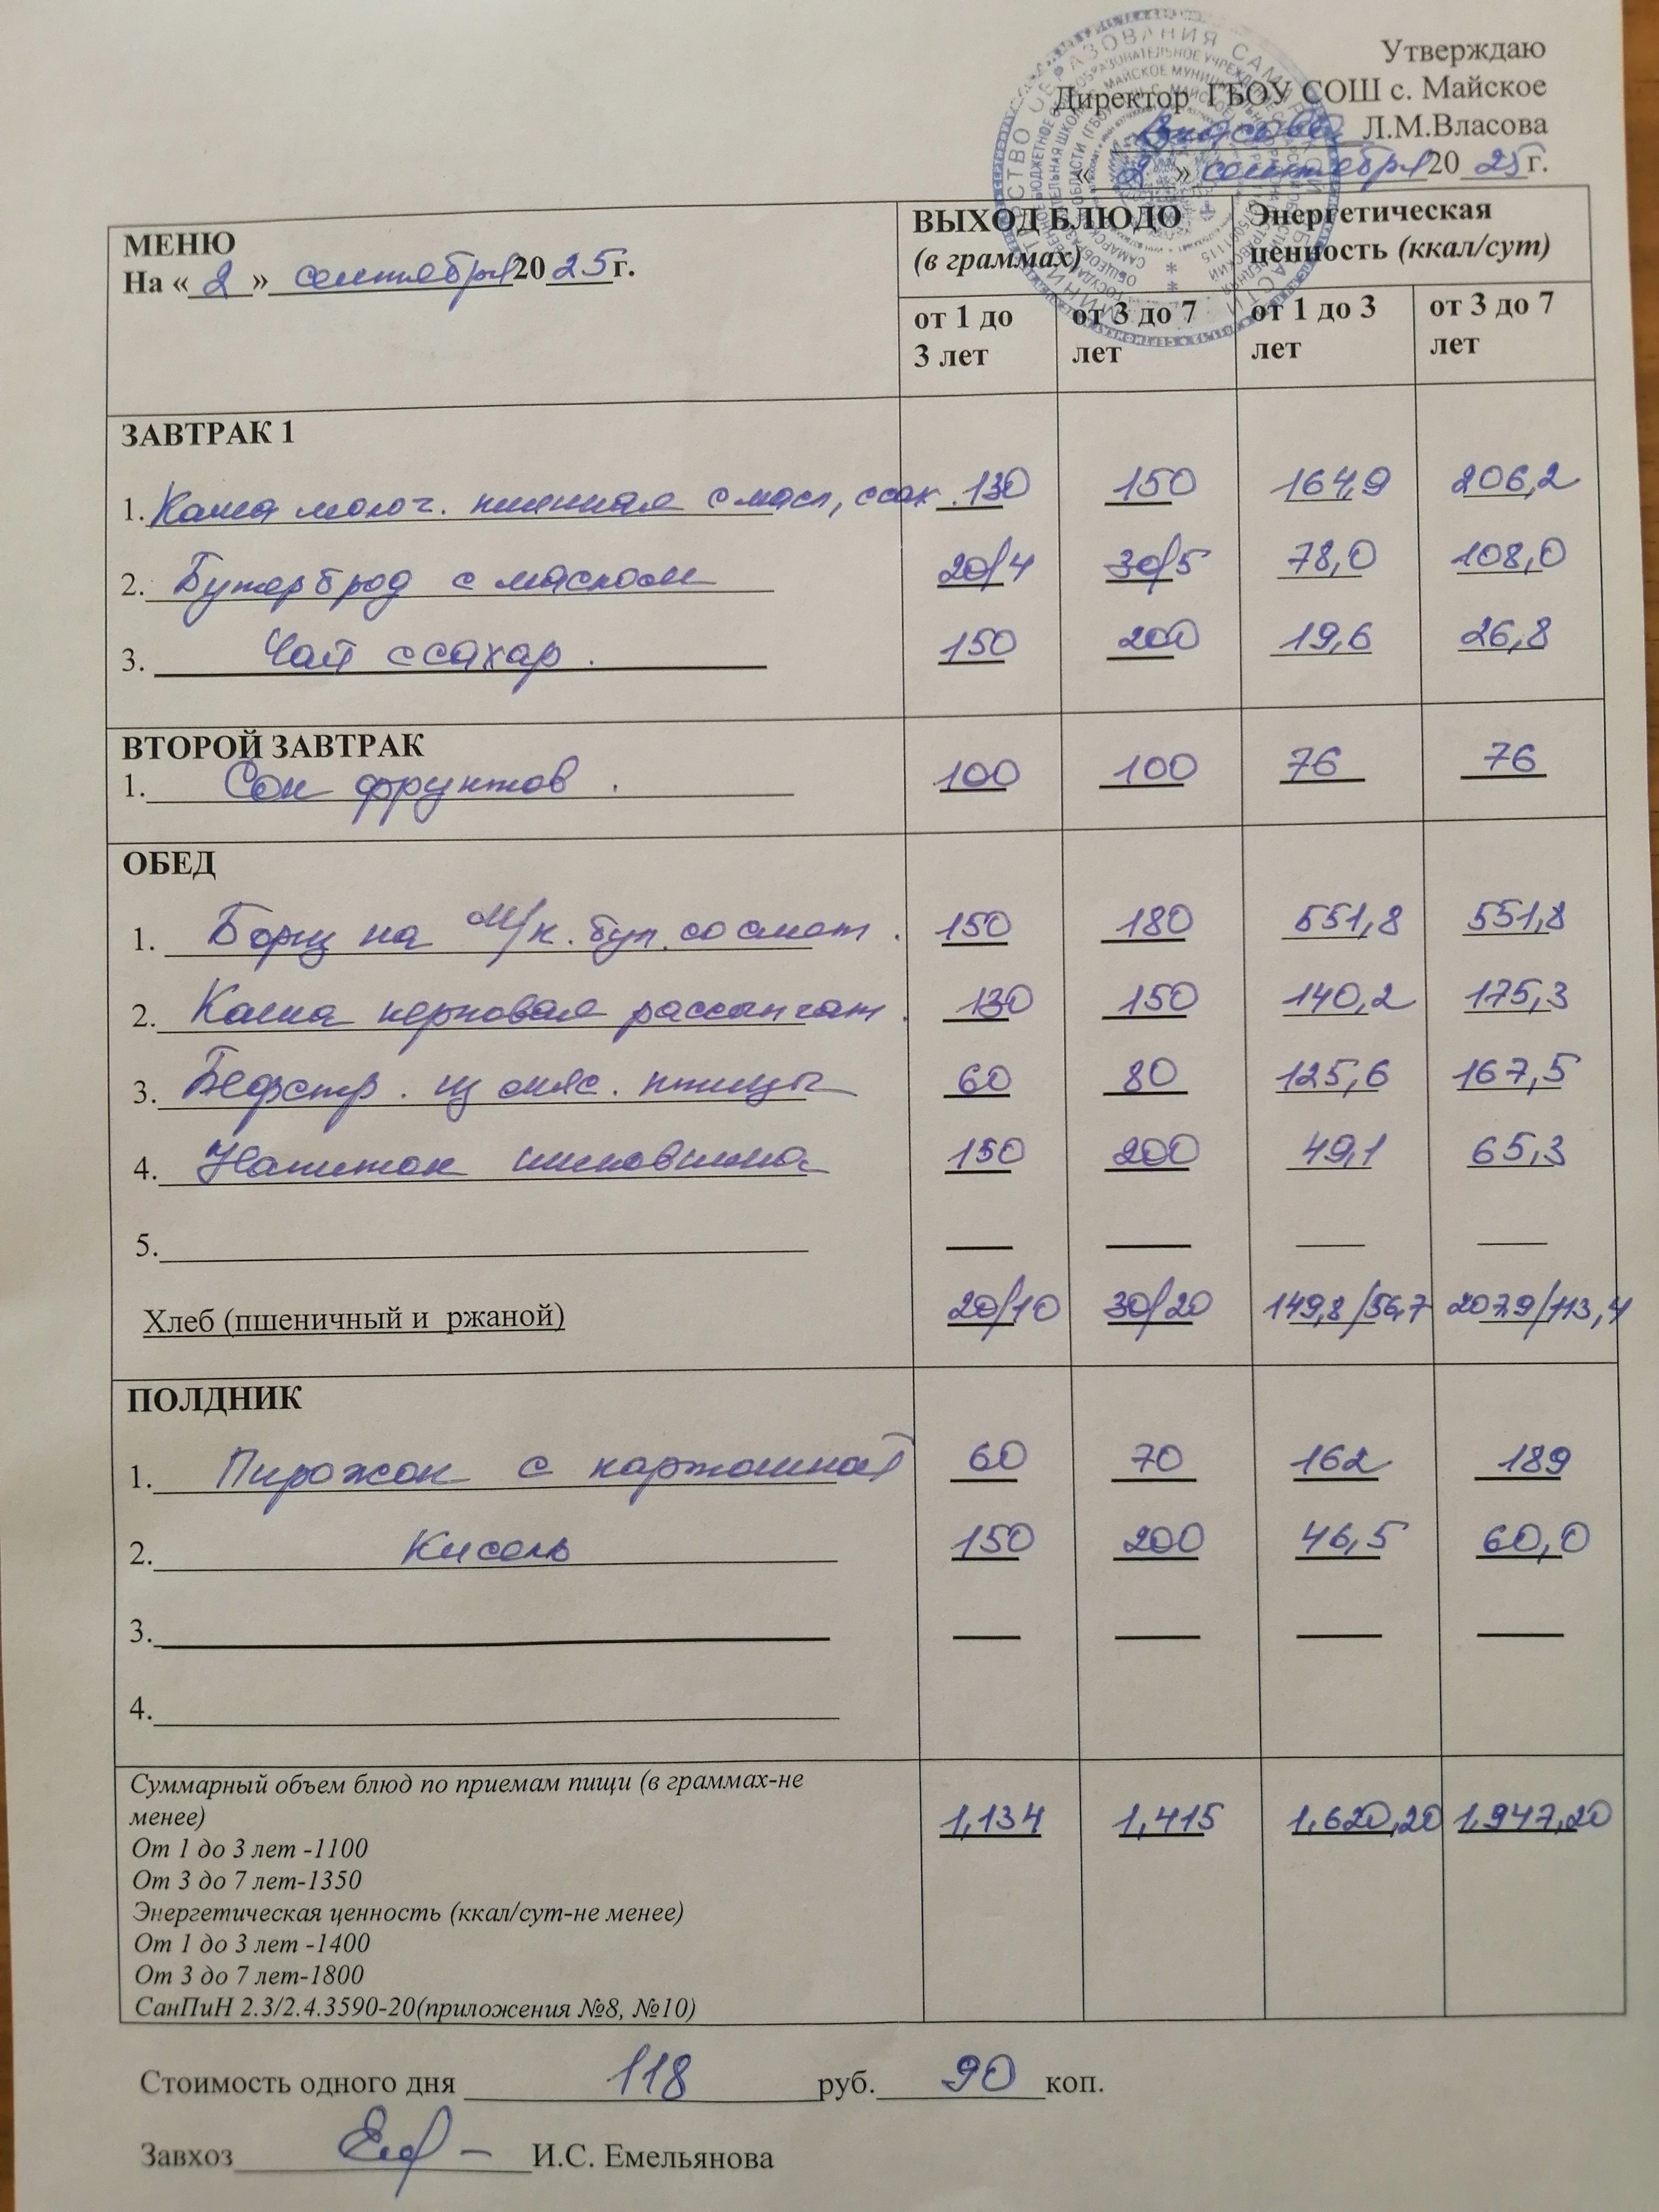 Утверждаю
Директор ГБОУ СОШ с. Майское
Власова Л.М.Власова
« 2 » сентября 20 25 г.
МЕНЮ
На « 2 » сентября 20 25 г.
ВЫХОД БЛЮДО
(в граммах)
Энергетическая
ценность (ккал/сут)
от 1 до
3 лет
от 3 до 7
лет
от 1 до 3
лет
от 3 до 7
лет
ЗАВТРАК 1
1. Каша молоч. пшенная с масл, с сах. 130 150 164,9 206,2
2. Бутерброд с маслом 20/4 30/5 78,0 108,0
3. Чай с сахар. 150 200 19,6 26,8
ВТОРОЙ ЗАВТРАК
1. Сок фруктов. 100 100 76 76
ОБЕД
1. Борщ на м/к. бул. со смет. 150 180 551,8 551,8
2. Каша перловая рассыпчат. 130 150 140,2 175,3
3. Бефстр. из мяс. птицы 60 80 125,6 167,5
4. Напиток шиповника 150 200 49,1 65,3
5.
Хлеб (пшеничный и ржаной) 20/10 30/20 149,8/56,7 207,9/113,4
ПОЛДНИК
1. Пирожок с картошкой 60 70 162 189
2. Кисель 150 200 46,5 60,0
3.
4.
Суммарный объем блюд по приемам пищи (в граммах-не
менее) 1,134 1,415 1.620,20 1.947,20
От 1 до 3 лет -1100
От 3 до 7 лет-1350
Энергетическая ценность (ккал/сут-не менее)
От 1 до 3 лет -1400
От 3 до 7 лет-1800
СанПиН 2.3/2.4.3590-20(приложения №8, №10)
Стоимость одного дня 118 руб. 90 коп.
Завхоз И.С. Емельянова